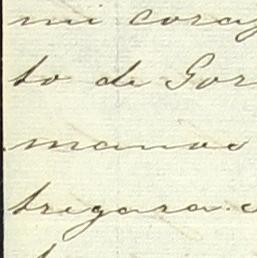 mi coraz
to de Gor
manos
tregara.